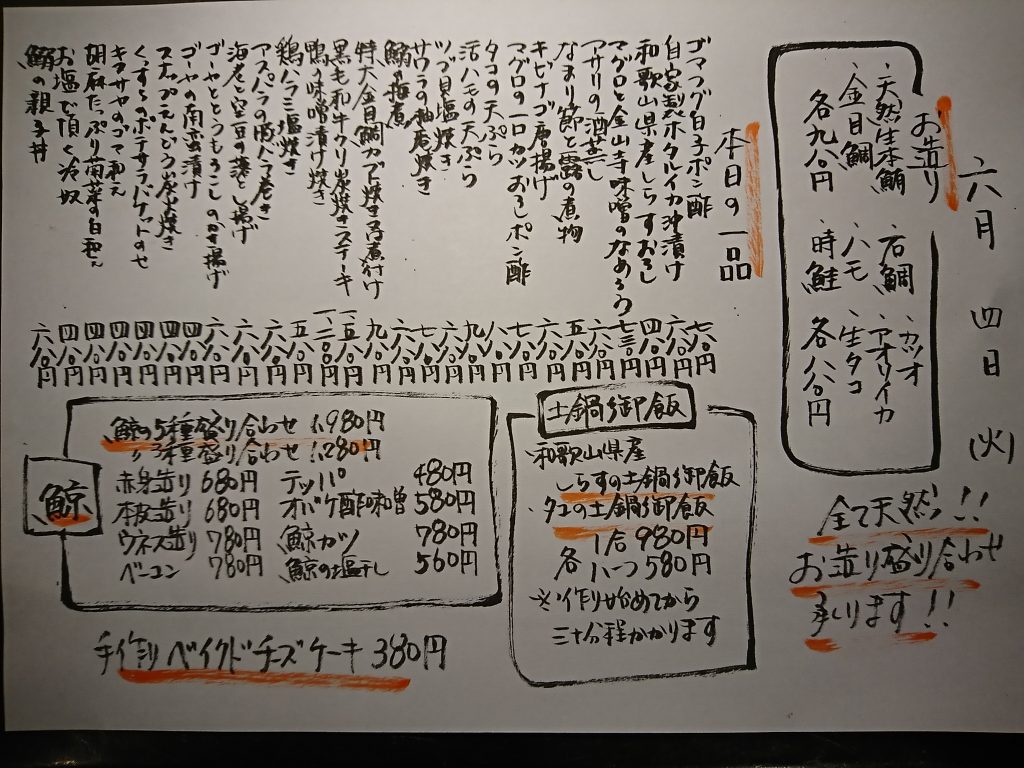 六月 四日 (火)
お造り
・天然生本鮪
・金目鯛
各九八〇円
・カツオ
・石鯛
・アオリイカ
・ハモ
・生タコ
・時鮭
各八八〇円
全て天然!!
お造り盛り合わせ
承ります!!
本日の一品
ゴマフグ白子ポン酢 七八〇円
自家製ホタルイカ沖漬け 六八〇円
和歌山県産しらすおろし 四八〇円
マグロと金山寺味噌のなめろう 七三〇円
アサリの酒蒸し 六八〇円
なまり節と蕗の煮物 五八〇円
キビナゴ唐揚げ 六八〇円
マグロの一口カツおろしポン酢 七八〇円
タコの天ぷら 八八〇円
活ハモの天ぷら 九八〇円
ツブ貝塩焼き 六八〇円
サワラの柚庵焼き 七八〇円
鮪の角煮 六八〇円
特大金目鯛カブト焼き又は煮付け 九八〇円
黒毛和牛ウリ炭焼きステーキ 一、五八〇円
鴨の味噌漬け焼き 一、二八〇円
鶏ハラミ塩焼き 五八〇円
アスパラの豚バラ巻き 六八〇円
海老と空豆の落とし揚げ 六八〇円
ゴーヤととうもろこしのかき揚げ 六八〇円
ゴーヤの南蛮漬け 四八〇円
スナップえんどう炭焼き 四八〇円
くっすらのポテサラバゲットのせ 四八〇円
キヌサヤのゴマ和え 四八〇円
胡麻たっぷり菊菜の白和え 四八〇円
お塩で頂く冷奴 四八〇円
鮪の親子丼 六八〇円
鯨
鯨の5種盛り合わせ 1,980円
〃3種盛り合わせ 1,280円
赤身造り 680円 テッパ 480円
本皮造り 680円 オバケ酢味噌 580円
ウネス造り 780円 鯨カツ 780円
ベーコン 780円 鯨の塩干し 560円
手作りベイクドチーズケーキ 380円
土鍋御飯
・和歌山県産
しらすの土鍋御飯
・タコの土鍋御飯
1合 980円
各 ハーフ 580円
※作り始めてから
三十分程かかります